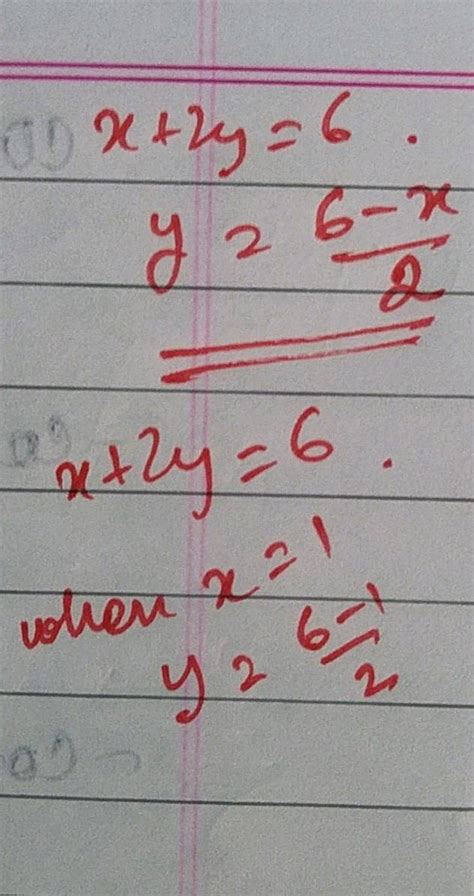 x+2y=6.
y = \frac{6-x}{2}
x+2y=6.
when x=1
y = \frac{6-1}{2}